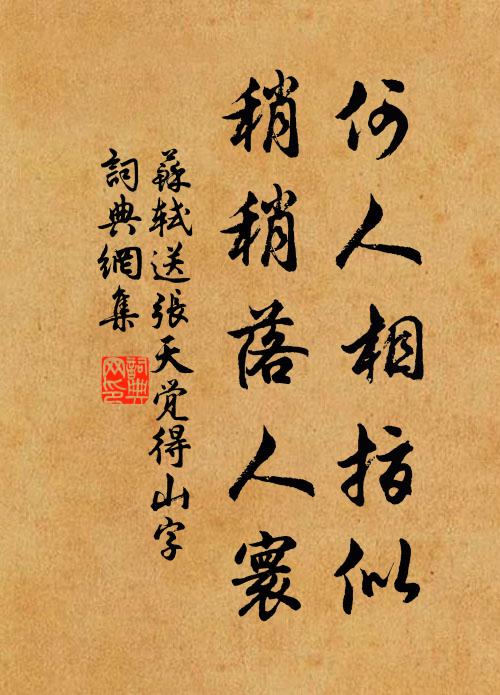 何人相指似
稍稍落人寰
蘇軾送張天覚得山字
詞典網集
詞典网印